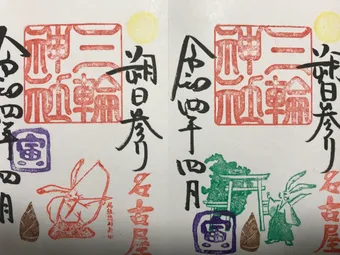 朔日参り
三輪神社
令和四年四月
名古屋
寅
朔日参り
三輪神社
令和四年四月
名古屋
寅